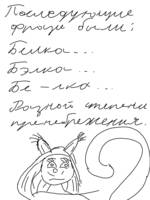 Последующие
фрази были:
Белка...
Бэлка...
Бе-лка...
Разной степени
пренебрежения.